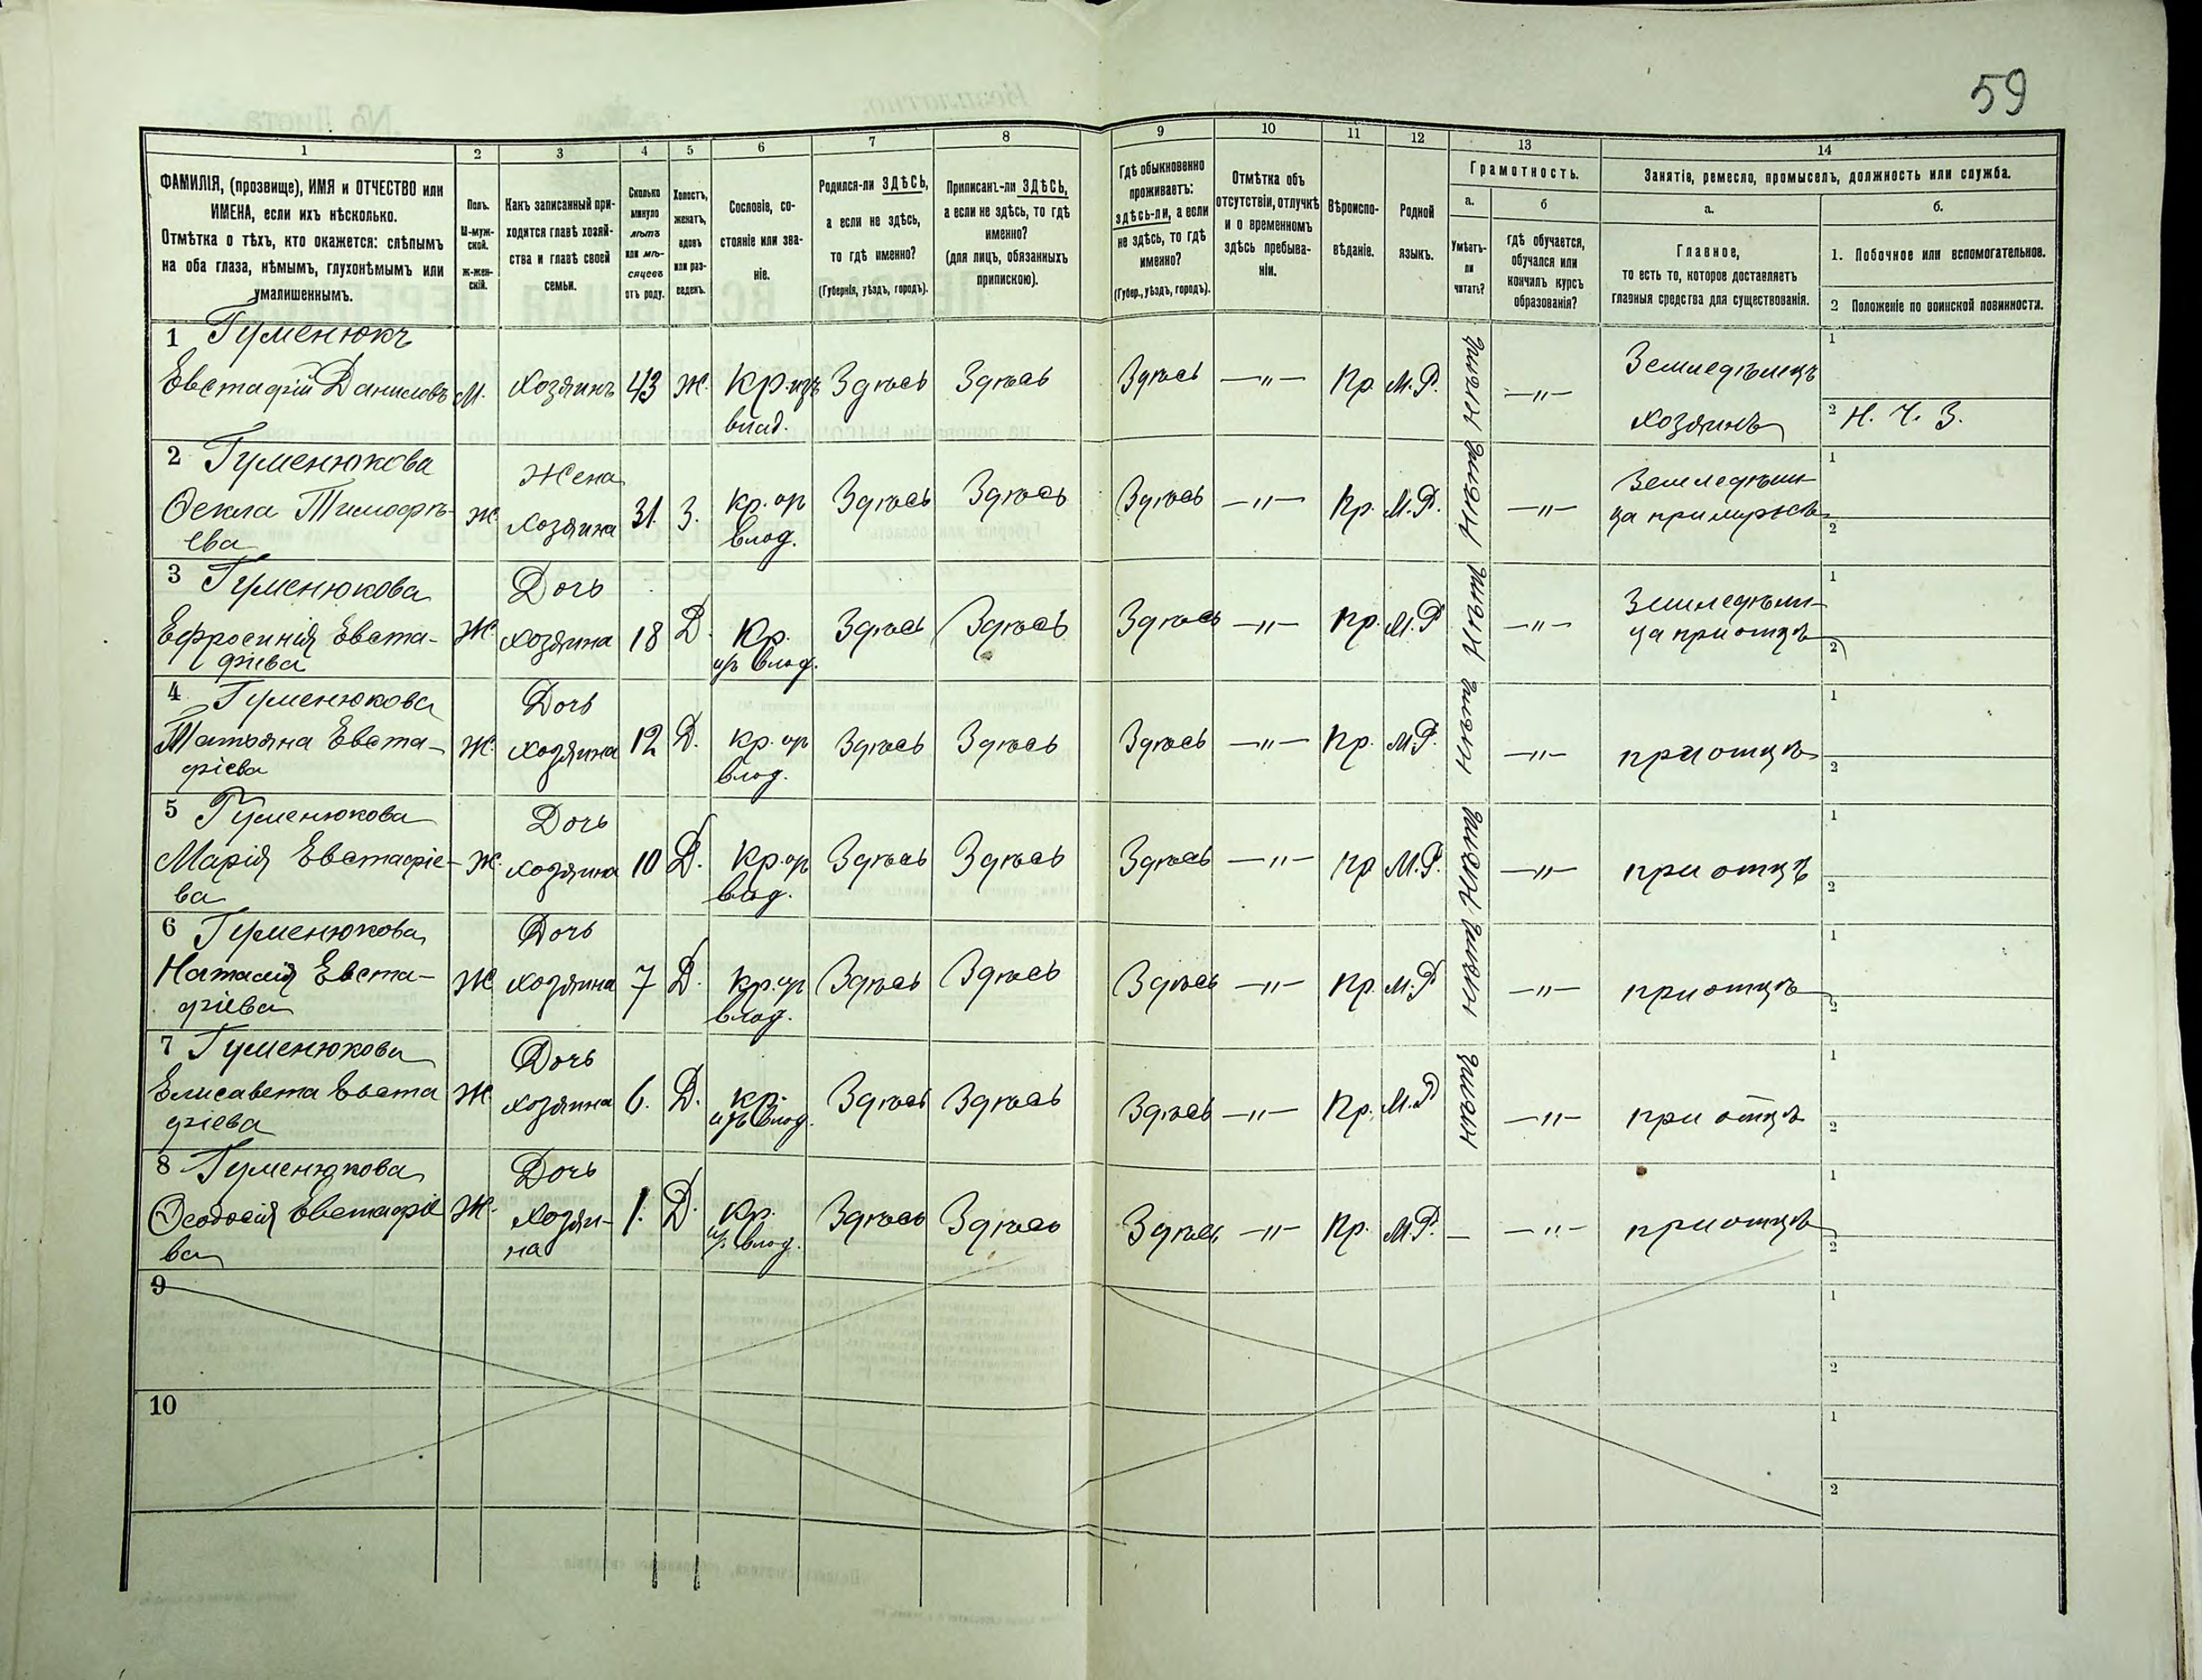 59
1
2
3
4
5
6
7
8
9
10
11
12
13
14
ФАМИЛІЯ, (прозвище), ИМЯ и ОТЧЕСТВО или
ИМЕНА, если ихъ нѣсколько.
Отмѣтка о тѣхъ, кто окажется: слѣпымъ
на оба глаза, нѣмымъ, глухонѣмымъ или
умалишеннымъ.
Полъ.
М-муж-
ской.
ж-жен-
скій.
Какъ записанный при-
ходится главѣ хозяй-
ства и главѣ своей
семьи.
Сколько
минуло
лѣтъ
или мѣ-
сяцевъ
отъ роду.
Холостъ,
женатъ,
вдовъ
или раз-
веденъ.
Сословіе, со-
стояніе или зва-
ніе.
Родился-ли ЗДѢСЬ,
а если не здѣсь,
то гдѣ именно?
(Губернія, уѣздъ, городъ).
Приписанъ-ли ЗДѢСЬ,
а если не здѣсь, то гдѣ
именно?
(для лицъ, обязанныхъ
припискою).
Гдѣ обыкновенно
проживаетъ:
здѣсь-ли, а если
не здѣсь, то гдѣ
именно?
(Губер., уѣздъ, городъ).
Отмѣтка объ
отсутствіи, отлучкѣ
и о временномъ
здѣсь пребыва-
ніи.
Вѣроиспо-
вѣданіе.
Родной
языкъ.
Грамотность.
а.
б
Умѣетъ-
ли
читать?
гдѣ обучается,
обучался или
кончилъ курсъ
образованія?
Занятіе, ремесло, промыселъ, должность или служба.
а.
б.
Главное,
то есть то, которое доставляетъ
главныя средства для существованія.
1. Побочное или вспомогательное.
2 Положеніе по воинской повинности.
1 Гуменюкъ
Евстафій Даниловъ М. Хозяинъ 43 Ж. Кр. изъ Здѣсь Здѣсь Здѣсь —"— Пр. М.Р. Нѣтъ —"— Земледѣлецъ 1
влад. хозяинъ 2 Н. Ч. З.
2 Гуменюкова Жена Земледѣли- 1
Фекла Тимофѣ- Ж Хозяина 31. З. Кр. из Здѣсь Здѣсь Здѣсь —"— Пр. М.Р. Нѣтъ —"— ца при мужѣ 2
ева влад.
3 Гуменюкова Дочь Земледѣли- 1
Ефросинія Евста- Ж. хозяина 18 Д. Кр. Здѣсь Здѣсь Здѣсь —"— Пр. М.Р. Нѣтъ —"— ца при отцѣ 2
фіева из влад.
4 Гуменюкова Дочь 1
Татьяна Евста- Ж. хозяина 12 Д. Кр. из Здѣсь Здѣсь Здѣсь —"— Пр. М.Р. Нѣтъ —"— при отцѣ 2
фіева влад.
5 Гуменюкова Дочь 1
Марія Евстафіе- Ж. хозяина 10 Д. Кр. из Здѣсь Здѣсь Здѣсь —"— Пр М.Р. Нѣтъ —"— при отцѣ 2
ва влад.
6 Гуменюкова Дочь 1
Наталія Евста- Ж хозяина 7 Д. Кр. из Здѣсь Здѣсь Здѣсь —"— Пр. М.Р Нѣтъ —"— при отцѣ 2
фіева влад.
7 Гуменюкова Дочь 1
Елисавета Евста Ж хозяина 6. Д. Кр. Здѣсь Здѣсь Здѣсь —"— Пр. М.Р Нѣтъ —"— при отцѣ 2
фіева изъ влад.
8 Гуменюкова Дочь 1
Ѳеодосія Евстафіе Ж. Хозяи- 1. Д. Кр. Здѣсь Здѣсь Здѣсь —"— Пр. М.Р. — —"— при отцѣ 2
ва на из влад.
9 1
2
10 1
2